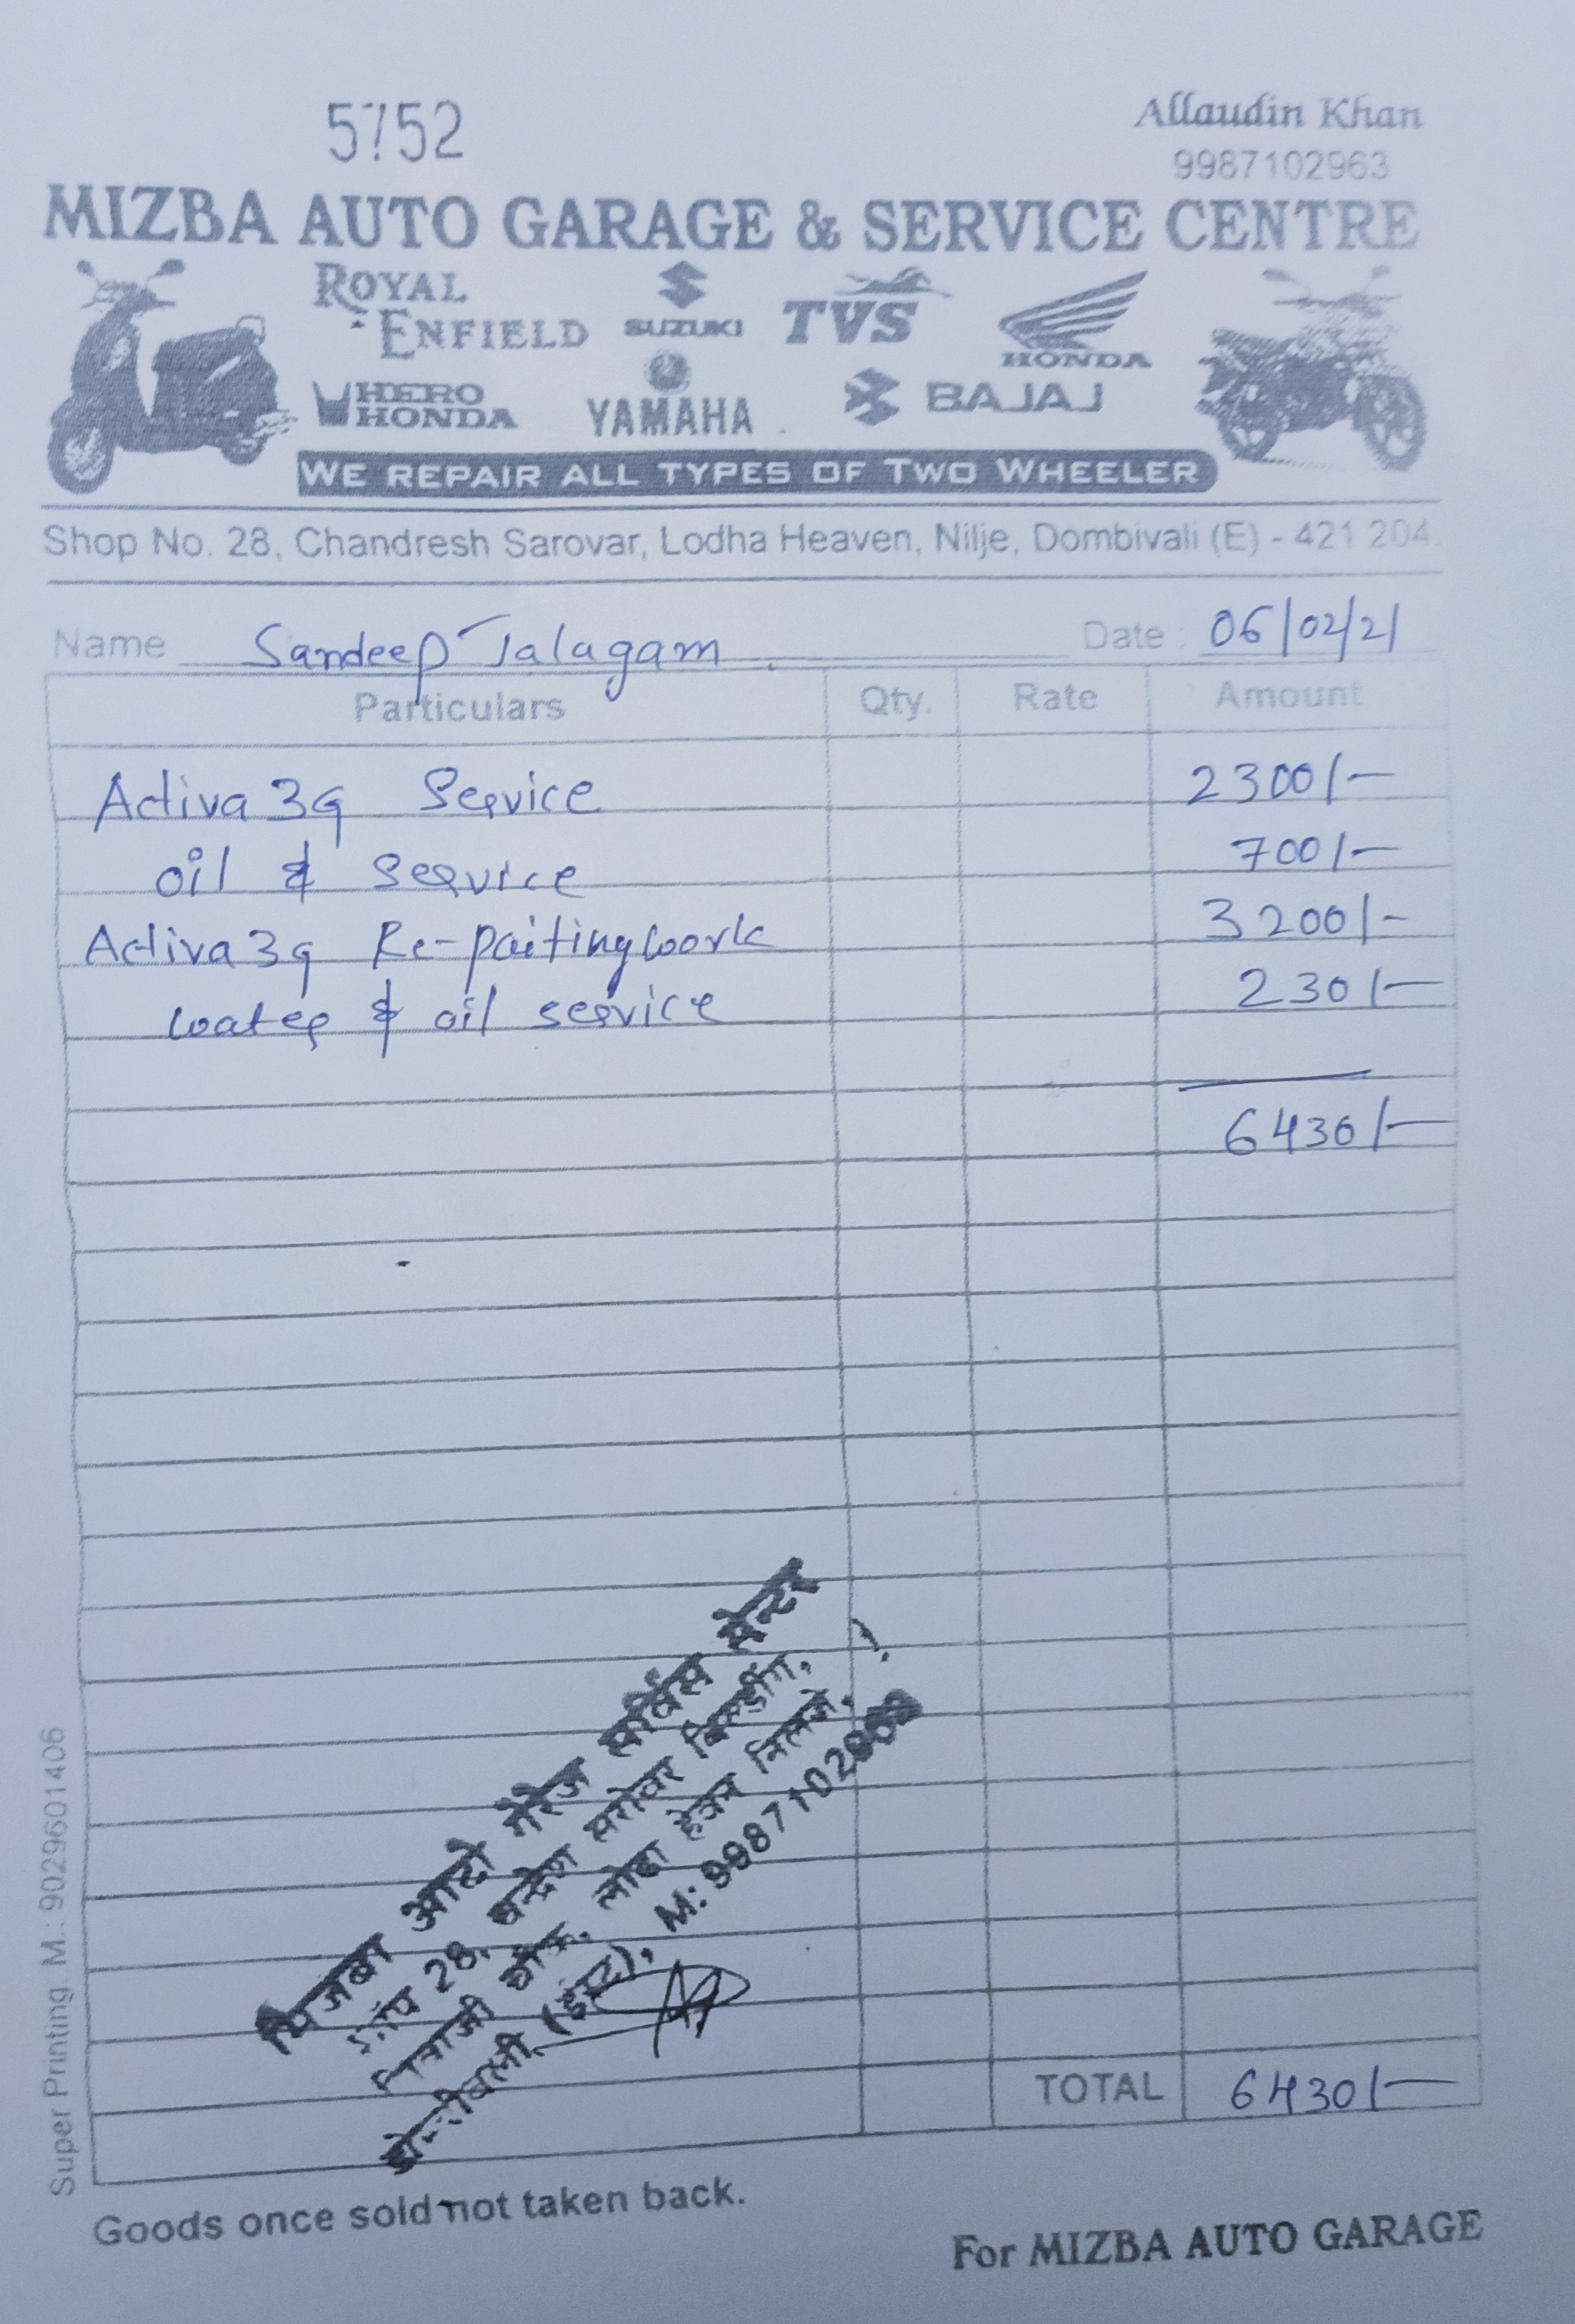 5752
Allaudin Khan
9987102963
MIZBA AUTO GARAGE & SERVICE CENTRE
ROYAL ENFIELD
SUZUKI
TVS
HONDA
HERO HONDA
YAMAHA
BAJAJ
WE REPAIR ALL TYPES OF TWO WHEELER
Shop No. 28, Chandresh Sarovar, Lodha Heaven, Nilje, Dombivali (E) - 421 204.
Name Sandeep Talagam Date : 06/02/21
Particulars Qty. Rate Amount
Activa 3g Service 2300/-
oil & service 700/-
Activa 3g Re-paitingwork 3200/-
water & oil service 230/-
6430/-
मिजबा आटो गॅरेज सर्विस सेन्टर
शॉप 28, चन्द्रेश सरोवर बिल्डींग,
शिवाजी चौक, लोढा हेवन निलजे,
डोंबीवली (ईस्ट), M: 9987102963
TOTAL 6430/-
Super Printing. M.: 9029601406
Goods once sold not taken back.
For MIZBA AUTO GARAGE